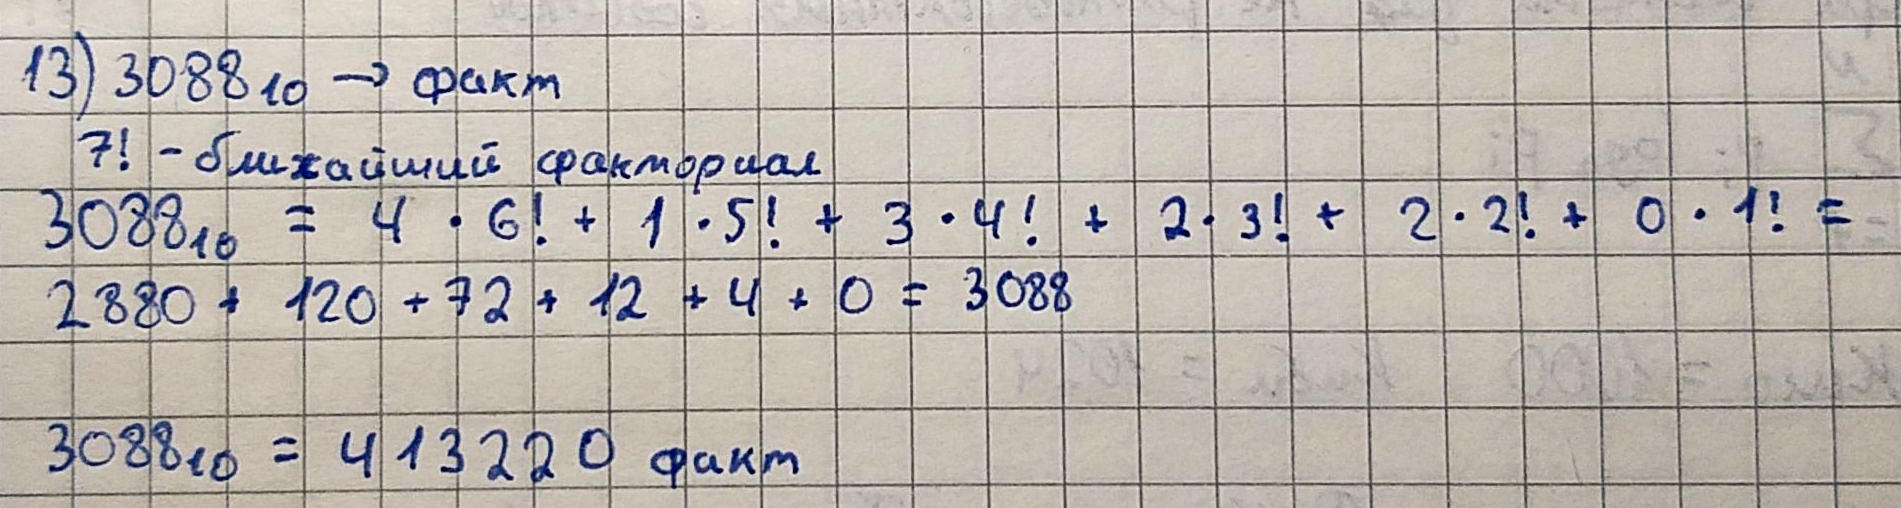 13) 3088₁₀ → факт
7! - ближайший факториал
3088₁₀ = 4 · 6! + 1 · 5! + 3 · 4! + 2 · 3! + 2 · 2! + 0 · 1! =
2880 + 120 + 72 + 12 + 4 + 0 = 3088
3088₁₀ = 413220 факт